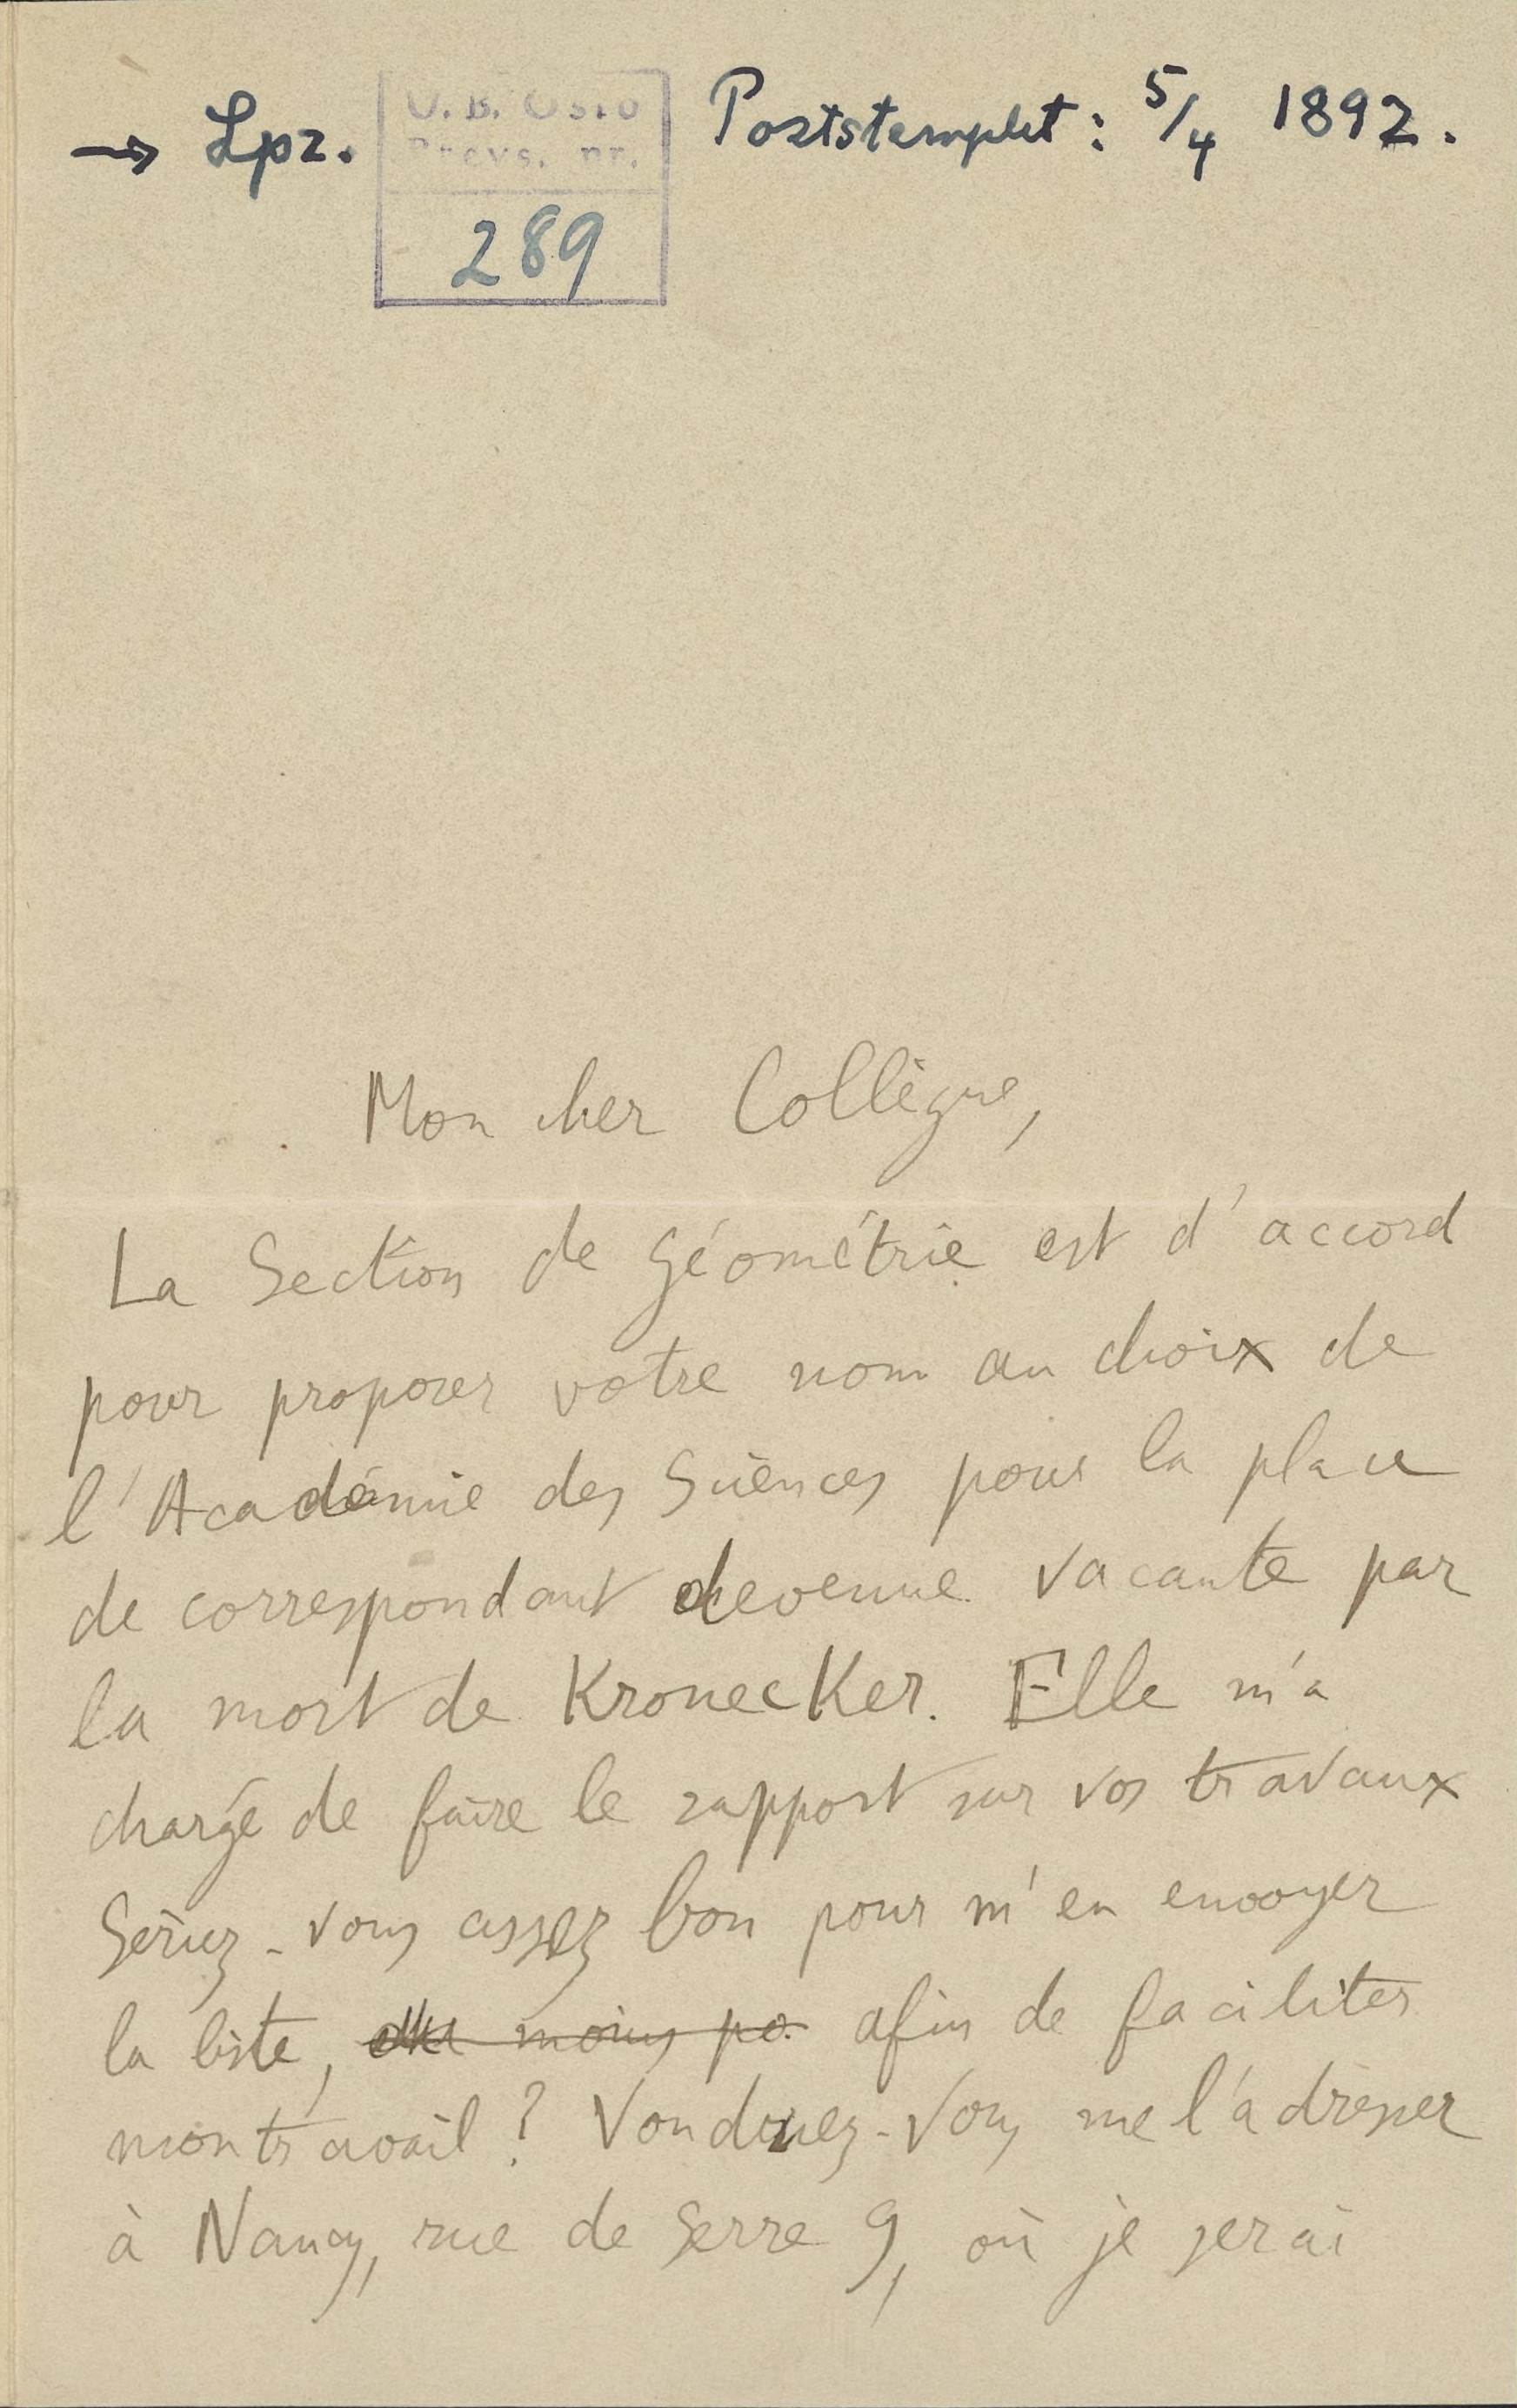 → Lpz.
U. B. Oslo
Brevs. nr.
289
Poststemplet: 5/4 1892.
Mon cher Collègue,
La Section de Géométrie est d'accord
pour proposer votre nom au choix de
l'Académie des Sciences pour la place
de correspondant devenue vacante par
la mort de Kronecker. Elle m'a
chargé de faire le rapport sur vos travaux
Seriez-vous assez bon pour m'en envoyer
la liste, moins po. afin de faciliter
mon travail ? Voudriez-vous me l'adresser
à Nancy, rue de Serre 9, où je serai